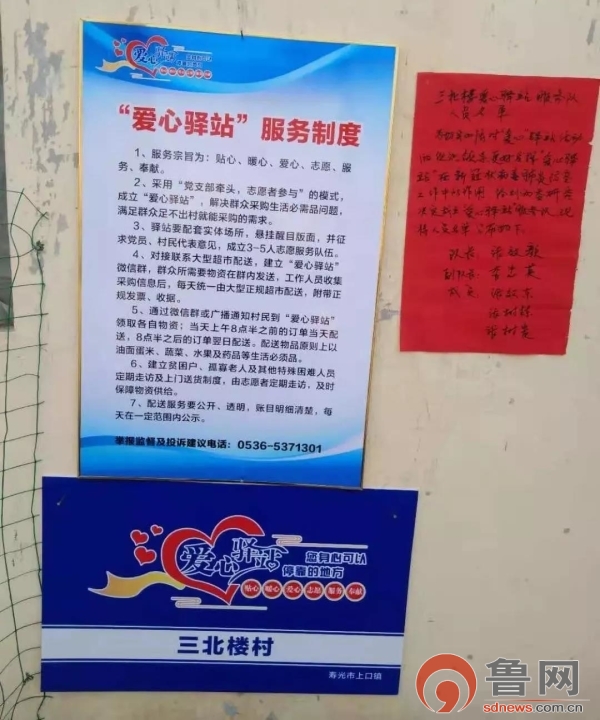 爱心驿站
贴心 暖心 爱心 志愿 服务 奉献
“爱心驿站”服务制度
1、服务宗旨为：贴心、暖心、爱心、志愿、服
务、奉献。
2、采用“党支部牵头，志愿者参与”的模式，
成立“爱心驿站”，解决群众采购生活必需品问题，
满足群众足不出村就能采购的需求。
3、驿站要配套实体场所，悬挂醒目版面，并征
求党员、村民代表意见，成立3-5人志愿服务队伍。
4、对接联系大型超市配送，建立“爱心驿站”
微信群，群众所需要物资在群内发送，工作人员收集
采购信息后，每天统一由大型正规超市配送，附带正
规发票、收据。
5、通过微信群或广播通知村民到“爱心驿站”
领取各自物资；当天上午8点半之前的订单当天配
送，8点半之后的订单翌日配送。配送物品原则上以
油面蛋米、蔬菜、水果及药品等生活必须品。
6、建立贫困户、孤寡老人及其他特殊困难人员
定期走访及上门送货制度，由志愿者定期走访，及时
保障物资供给。
7、配送服务要公开、透明，账目明细清楚，每
天在一定范围内公示。
举报监督及投诉建议电话：0536-5371301
三北楼爱心驿站 服务队
人员名单
队长
副队长
爱心驿站
您有心可以
停靠的地方
贴心 暖心 爱心 志愿 服务 奉献
三北楼村
寿光市上口镇
鲁网
sdnews.com.cn